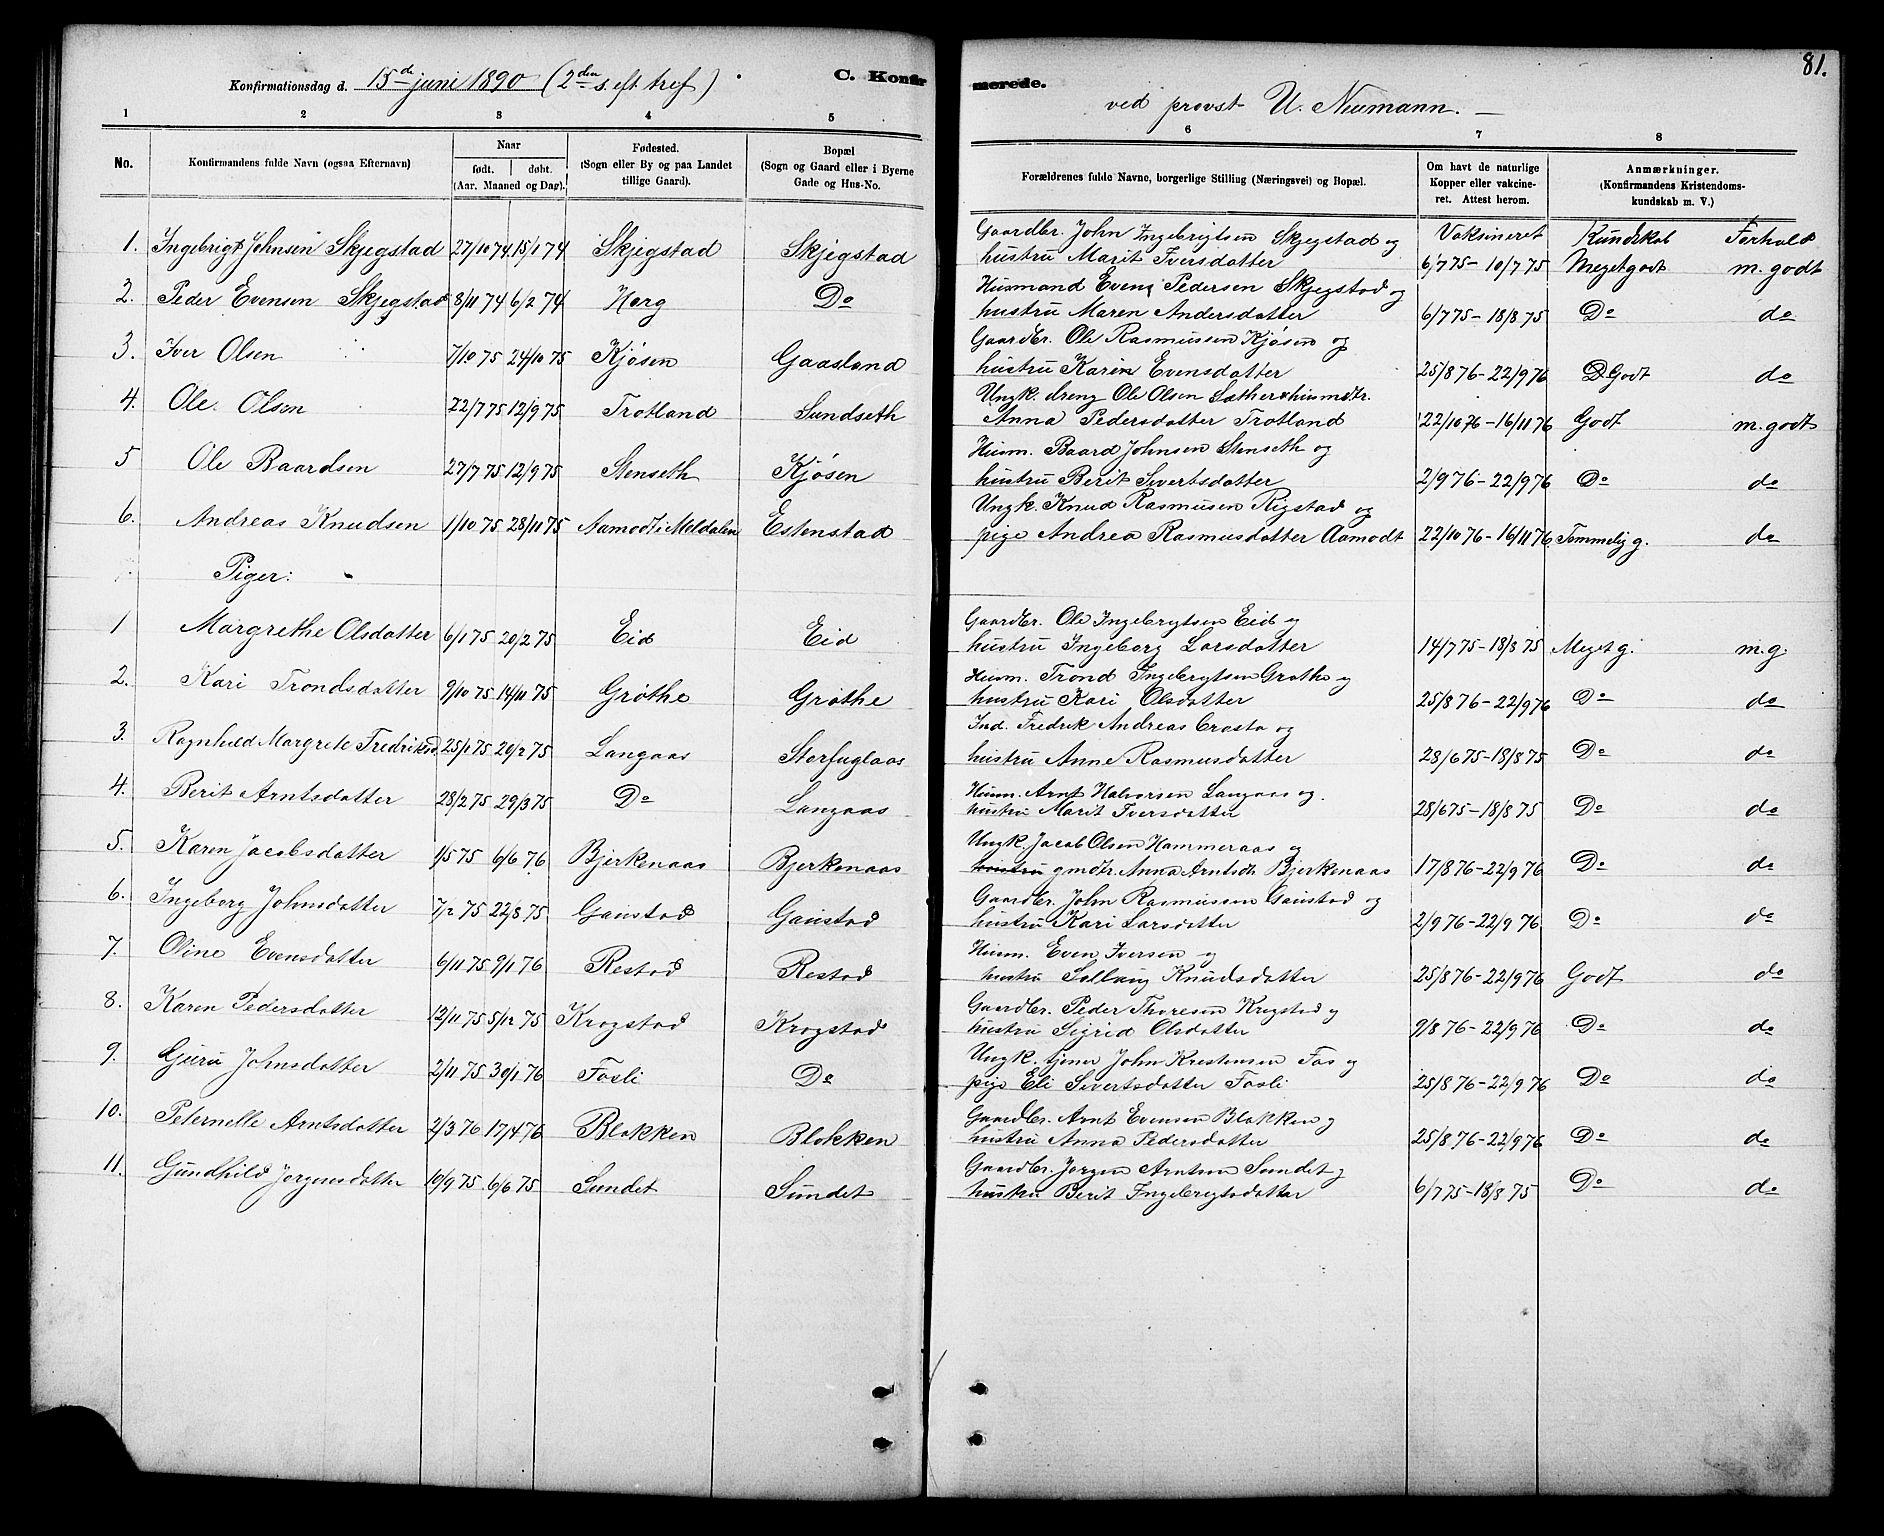 81.
Konfirmationsdag d. 15de juni 1890 (2den s. eft tref).
C. Konfirmerede.
ved provst U. Neumann. —
1 2 3 4 5 6 7 8
No. | Konfirmandens fulde Navn (ogsaa Efternavn) | Naar født. døbt. (Aar, Maaned og Dag). | Fødested. (Sogn eller By og paa Landet tillige Gaard). | Bopæl (Sogn og Gaard eller i Byerne Gade og Hus-No. | Forældrenes fulde Navne, borgerlige Stilling (Næringsvei) og Bopæl. | Om havt de naturlige Kopper eller vakcineret. Attest herom. | Anmærkninger. (Konfirmandens Kristendomskundskab m. V.)
Vaksineret | Kundskab | Forhold
1. Ingebrigt Johnsen Skjegstad | 27/10 74 15/1 74 | Skjegstad | Skjegstad | Gaardbr. John Ingebrigtsen Skjegstad og hustru Marit Iversdatter | 6/7 75 – 10/7 75 | Meget godt | m. godt
2. Peder Evensen Skjegstad | 8/11 74 6/2 74 | Horg | Do | Husmand Even Pedersen Skjegstad og hustru Maren Andersdatter | 6/7 75 – 18/8 75 | Do | do
3. Iver Olsen | 7/10 75 24/10 75 | Kjøsen | Gaasland | Gaardbr. Ole Rasmussen Kjøsen og hustru Karen Evensdatter | 25/8 76 – 22/9 76 | Godt | do
4. Ole Olsen | 22/7 75 12/9 75 | Trotland | Sundseth | Ungk. dreng Ole Olsen Sæther & husmdtr. Anna Pedersdatter Trotland | 22/10 76 – 16/11 76 | Godt | m. godt
5 Ole Baardsen | 27/7 75 12/9 75 | Stenseth | Kjøsen | Husm. Baard Johnsen Stenseth og hustru Berit Sivertsdatter | 2/9 76 – 22/9 76 | Do | do
6. Andreas Knudsen | 1/10 75 28/11 75 | Aamodt i Meldalen | Estenstad | Ungk. Knud Rasmusen Rigstad og pige Andrea Rasmusdatter Aamodt | 22/10 76 – 16/11 76 | Temmelig g. | do
Piger:
1 Margrethe Olsdatter | 6/1 75 20/2 75 | Eid | Eid | Gaardbr. Ole Ingebrigtsen Eid og hustru Ingeborg Larsdatter | 14/7 75 – 18/8 75 | Meget g. | m. g.
2. Kari Trondsdatter | 9/10 75 14/11 75 | Grøthe | Grøthe | Husm. Trond Ingebrigtsen Grøthe og hustru Kari Olsdatter | 25/8 76 – 22/9 76 | Do | do
3. Ragnhild Margrete Fredriksd. | 25/1 75 20/2 75 | Langaas | Storfuglaas | Ind. Fredrik Andreas Crasto og hustru Anne Rasmusdatter | 28/6 75 – 18/8 75 | Do | do
4. Berit Arntsdatter | 28/2 75 29/3 75 | Do | Langaas | Husm. Arnt Halvorsen Langaas og hustru Marit Iversdatter | 28/6 75 – 18/8 75 | Do | do
5. Karen Jacobsdatter | 1/5 75 6/6 76 | Bjerkenaas | Bjerkenaas | Ungk. Jacob Olsen Hammeraas og hustru gmdtr. Anna Arntsdt. Bjerkenaas | 17/8 76 – 22/9 76 | Do | do
6. Ingeborg Johnsdatter | 7/2 75 22/8 75 | Gaustad | Gaustad | Gaardbr. John Rasmussen Gaustad og hustru Kari Larsdatter | 2/9 76 – 22/9 76 | Do | do
7. Oline Evensdatter | 6/11 75 9/1 76 | Restad | Restad | Husm. Even Iversen og hustru Sollaug Knudsdatter | 25/8 76 – 22/9 76 | Godt | do
8. Karen Pedersdatter | 12/11 75 5/12 75 | Krogstad | Krogstad | Gaardbr. Peder Thoresen Krogstad og hustru Sigrid Olsdatter | 9/8 76 – 22/9 76 | Do | do
9. Guru Johnsdatter | 2/11 75 30/1 76 | Fosli | Do | Ungk. tjener John Kristensen Fos og pige Eli Sivertsdatter Fosli | 25/8 76 – 22/9 76 | Do | do
10. Peternelle Arntsdatter | 2/3 76 17/4 76 | Blokken | Blokken | Gaardbr. Arnt Evensen Blokken og hustru Anna Pedersdatter | 25/8 76 – 22/9 76 | Do | do
11. Gundhild Jørgensdatter | 10/9 75 6/6 75 | Sundet | Sundet | Gaardbr. Jørgen Arntsen Sundet og hustru Berit Ingebrigtsdatter | 6/7 75 – 18/8 75 | Do | do